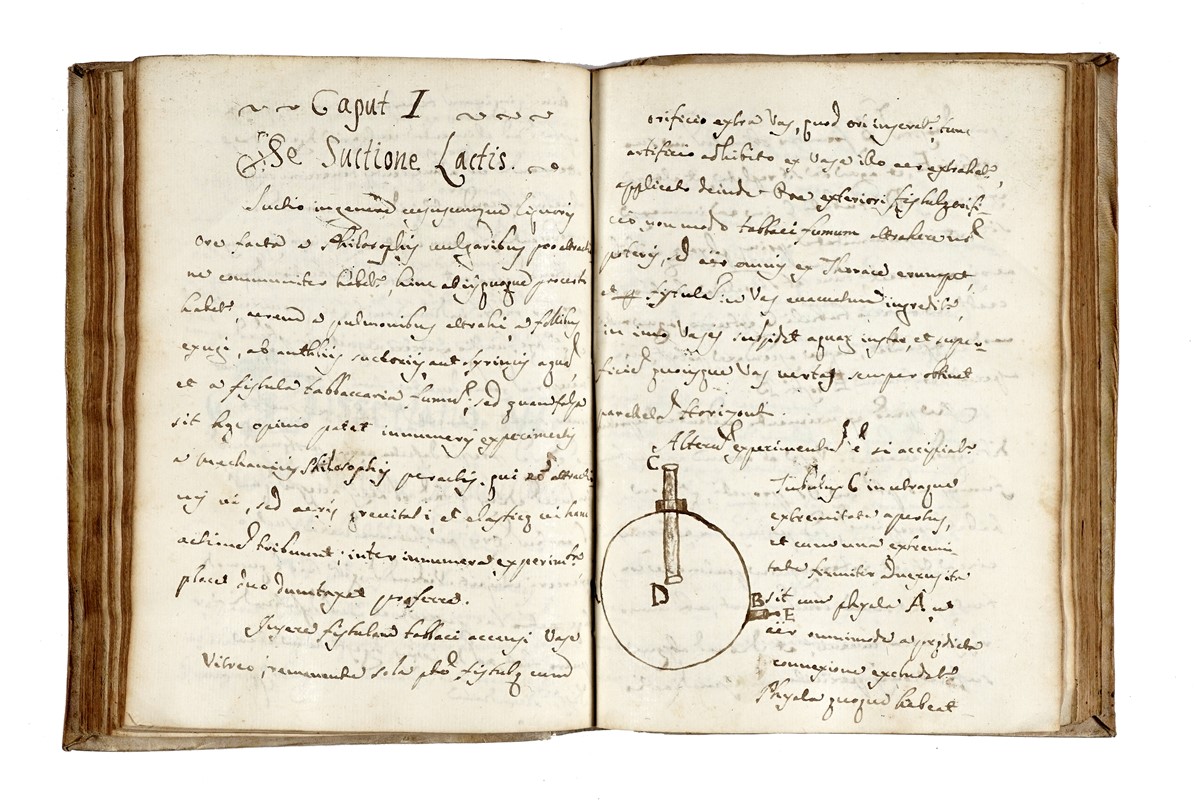 Caput I
De Suctione Lactis.
Suctio in genere cujuscunque liquoris
ore facta a Philosophis vulgaribus pro attractio
ne communiter habetʳ, hinc ab ijs quoque pro certo
habetʳ, aerem a pulmonibus attrahi, a follibus
exugi, ab anthlijs suctorijs aut syringis aquā,
et a fistula tabbaccaria fumū; sed quam falsa
sit hæc opinio patet innumeris experimentis
a Mechanicis Philosophis peractis, qui nō attracti
nis vi, sed aeris gravitati et elasticæ vi hanc
actionē tribuunt; inter innumera experimēta
placet duo dumtaxat proferre.
Insere fistulam tabbaci accensi Vase
Vitreo, remanente sola fistulæ cum
orificio extra Vas, quod ori inseratʳ, tunc
artificio adhibito ex Vase illo aer extrahatʳ,
applicato deinde Ore exteriori fistulæ orifi-
cio, non modo tabbaci fumum attrahere
poteris, sed aër omnis ex Thorace erumpet,
et fistulā in Vas evacuatum ingredietʳ,
in imo Vasis subsidet aquæ instar, et super-
ficiē quousque Vas vertas semper obtinet
parallelā Horizonti.
Alterū experimentū ē si accipiatʳ
C
Tubulus C in utraque
extremitate apertus,
et cum una extremi-
tate firmiter
D
sit cum phyala A ut
B
E
aër omnimode a prædicta
connexione excludatʳ
Phyala quoque habeat